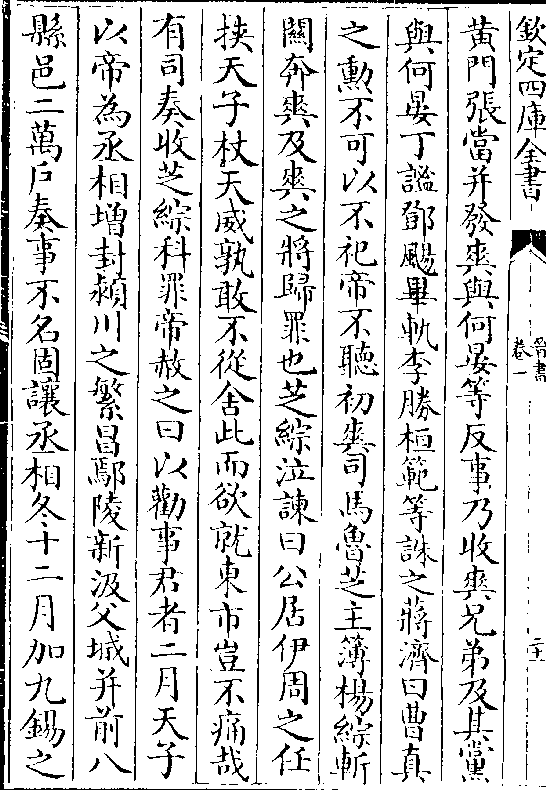 欽定四庫全書
晉書
卷一
黄門張當并發爽與何晏等反事乃收爽兄弟及其黨
與何晏丁謐鄧颺畢軌李勝桓範等誅之蔣濟曰曹真
之勳不可以不祀帝不聽初爽司馬魯芝主簿楊綜斬
關奔爽及爽之將歸罪也芝綜泣諫曰公居伊周之任
挾天子杖天威孰敢不從舍此而欲就東市豈不痛哉
有司奏收芝綜科罪帝赦之曰以勸事君者二月天子
以帝為丞相增封潁川之繁昌鄢陵新汲父城并前八
縣邑二萬戶奏事不名固讓丞相冬十二月加九錫之